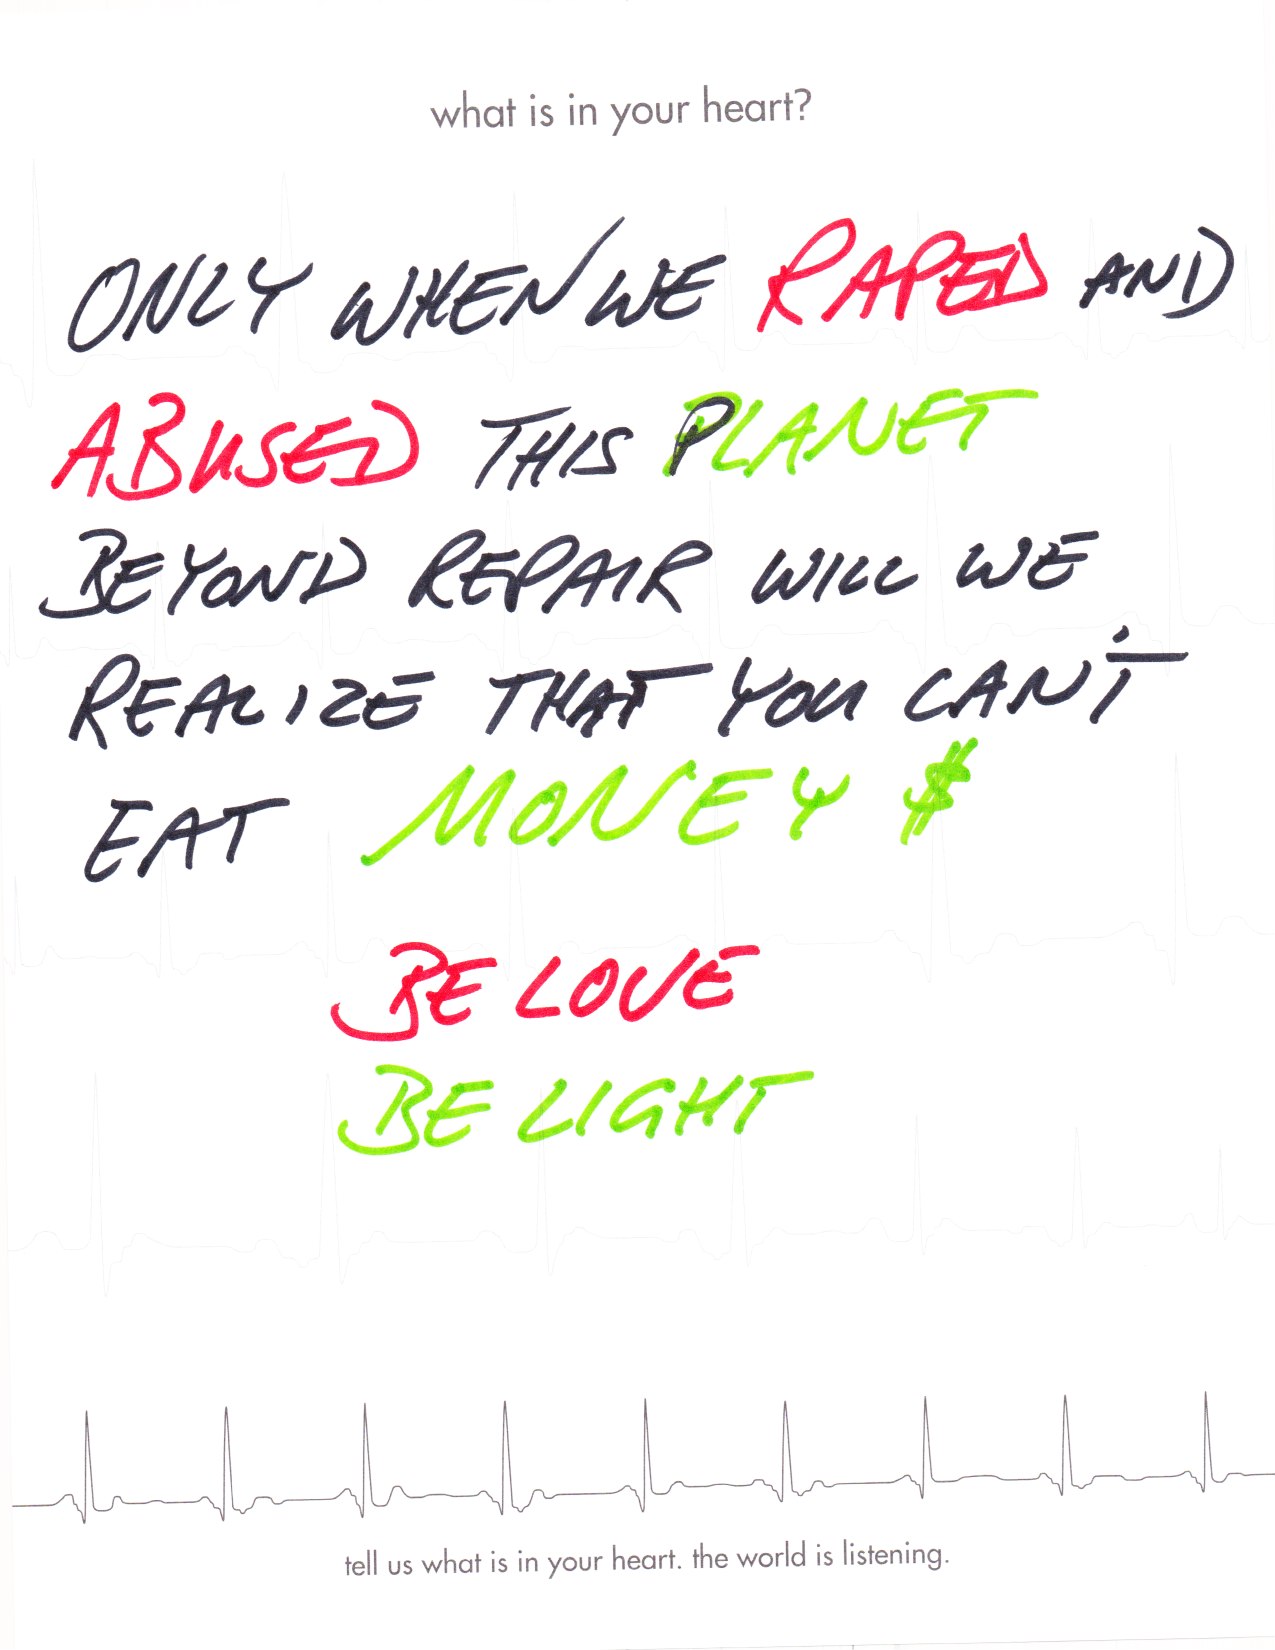 what is in your heart?
ONLY WHEN WE RAPED AND
ABUSED THIS PLANET
BEYOND REPAIR WILL WE
REALIZE THAT YOU CAN'T
EAT MONEY $
BE LOVE
BE LIGHT
tell us what is in your heart. the world is listening.